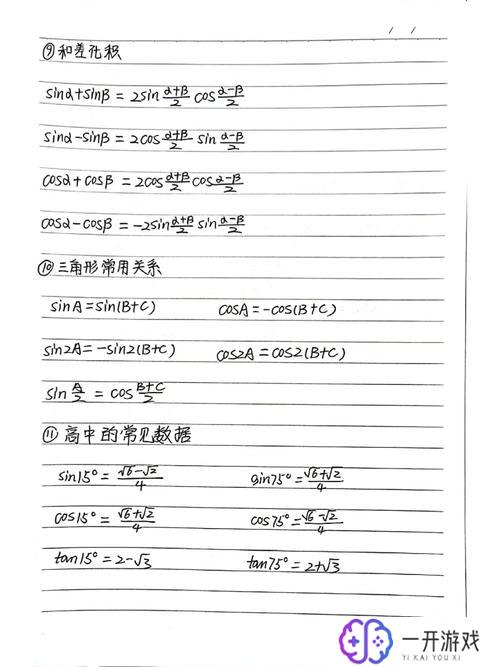 / /
⑨和差化积
sinα+sinβ=2sin\frac{α+β}{2}cos\frac{α-β}{2}
sinα-sinβ=2cos\frac{α+β}{2}sin\frac{α-β}{2}
cosα+cosβ=2cos\frac{α+β}{2}cos\frac{α-β}{2}
cosα-cosβ=-2sin\frac{α+β}{2}sin\frac{α-β}{2}
⑩三角形常用关系
sinA=sin(B+C) cosA=-cos(B+C)
sin2A=-sin2(B+C) cos2A=cos2(B+C)
sin\frac{A}{2}=cos\frac{B+C}{2}
⑪高中的常见数据
sin15°=\frac{√6-√2}{4} sin75°=\frac{√6+√2}{4}
cos15°=\frac{√6+√2}{4} cos75°=\frac{√6-√2}{4}
tan15°=2-√3 tan75°=2+√3
一开游戏
YI KAI YOU XI